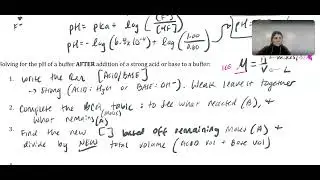 pH = pKa + log ( [F⁻] / [HF] )
pH = -log (6.9 x 10⁻⁴) + log ( 1.00 / 0.60 )
Solving for the pH of a buffer AFTER addition of a strong acid or base to a buffer:
1. Write the Rxn [ACID/BASE]
→ Strong (ACID: H₃O⁺ or BASE: OH⁻). Weak leave it together
2. Complete the BCA table: to see what reacted (Δ), &
what remains (A) (moles)
3. Find the new [ ] based off remaining moles (A), &
divide by NEW total volume (acid vol + base vol)